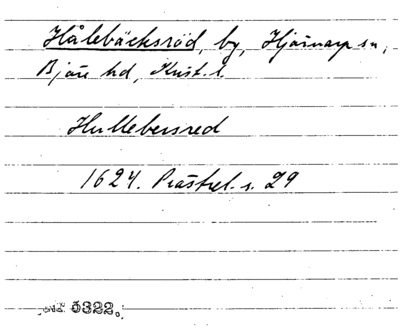 Hålebäcksröd, by, Hjärnarp sn,
Bjäre hd, Krist. l.
Hullebersred
1624. Prästrel. s. 29
6322.